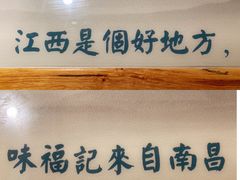 江西是個好地方，
味福記來自南昌